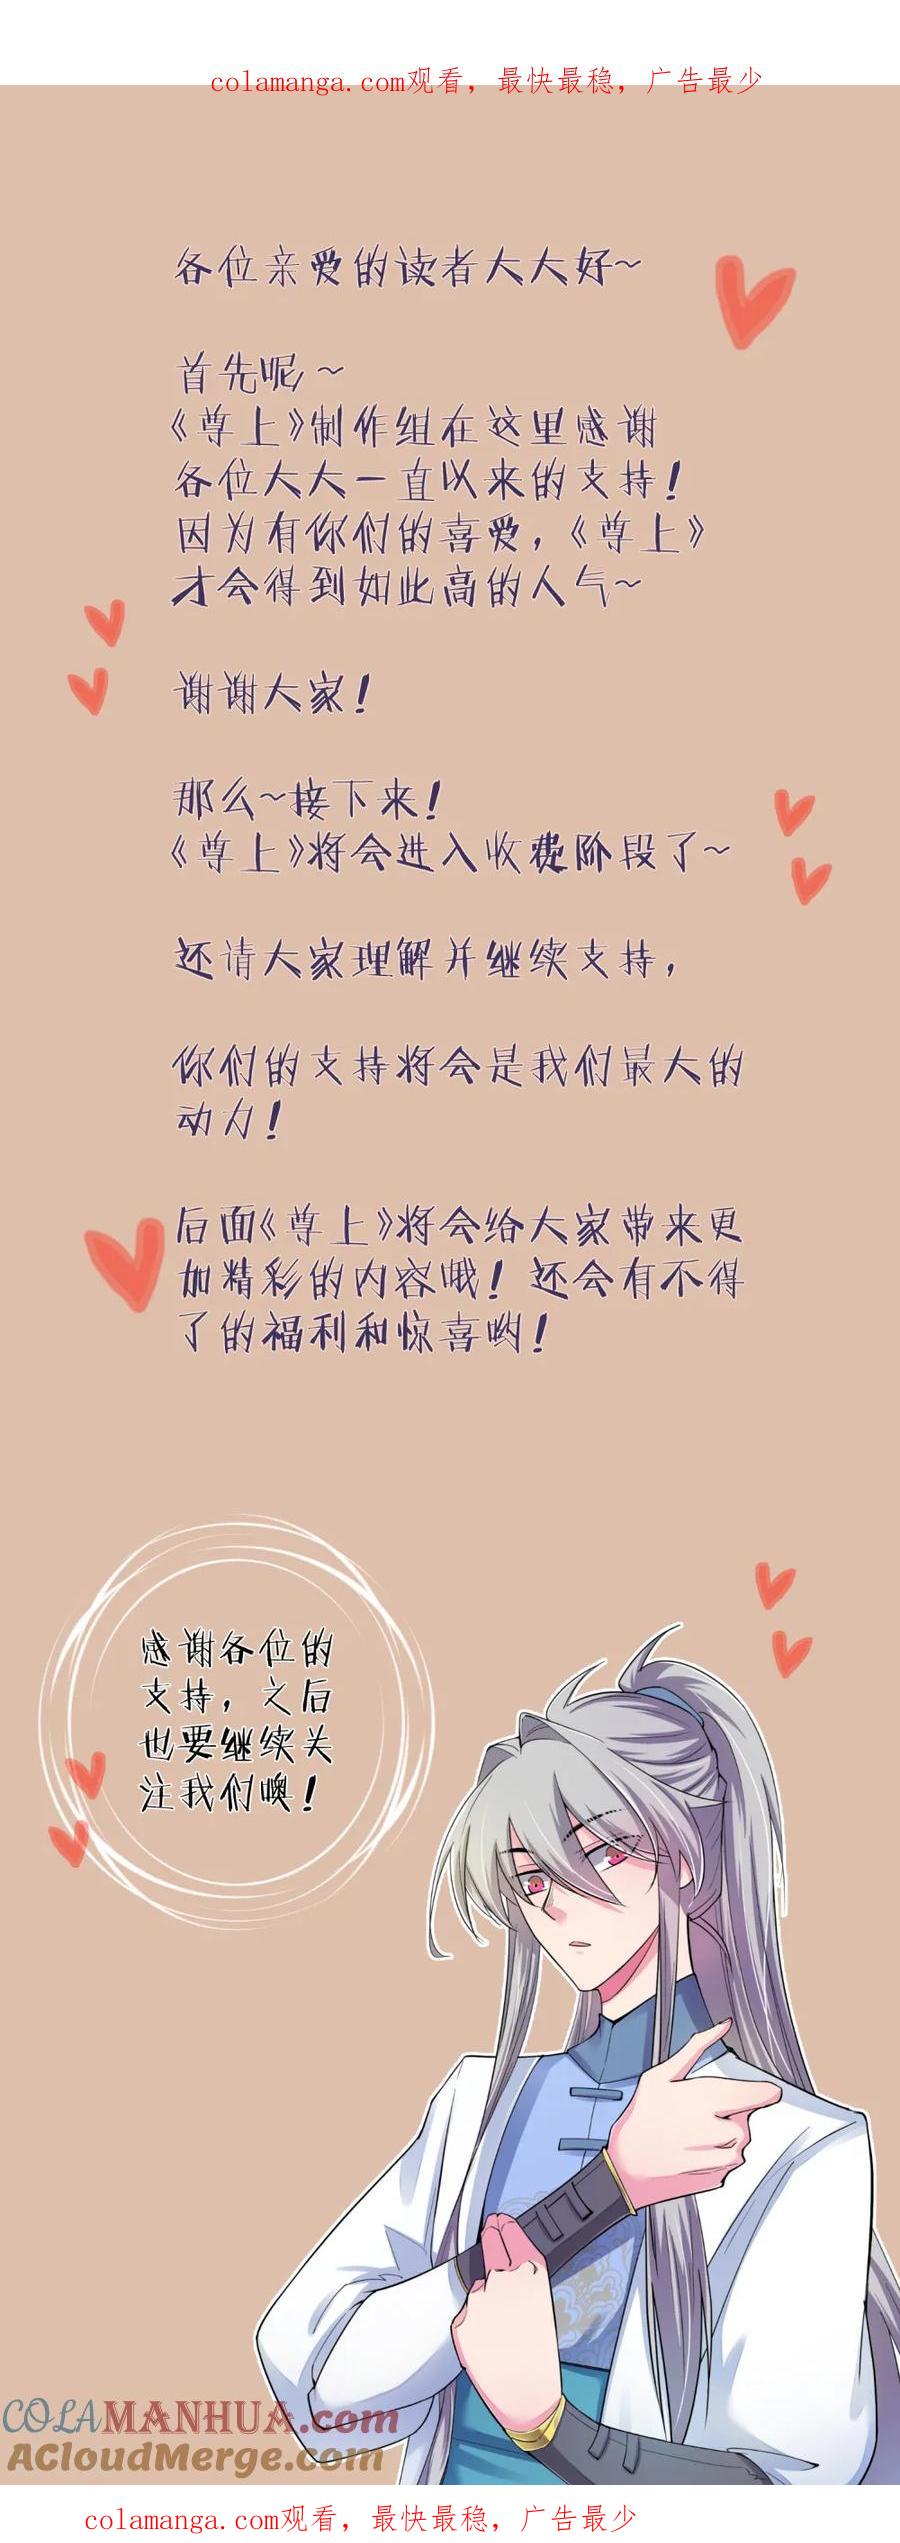 colamanga.com观看，最快最稳，广告最少
各位亲爱的读者大大好~
首先呢~
《尊上》制作组在这里感谢
各位大大一直以来的支持！
因为有你们的喜爱，《尊上》
才会得到如此高的人气~
谢谢大家！
那么~接下来！
《尊上》将会进入收费阶段了~
还请大家理解并继续支持，
你们的支持将会是我们最大的
动力！
后面《尊上》将会给大家带来更
加精彩的内容哦！还会有不得
了的福利和惊喜哟！
感谢各位的
支持，之后
也要继续关
注我们噢！
COLAMANHUA.com
ACloudMerge.com
colamanga.com观看，最快最稳，广告最少